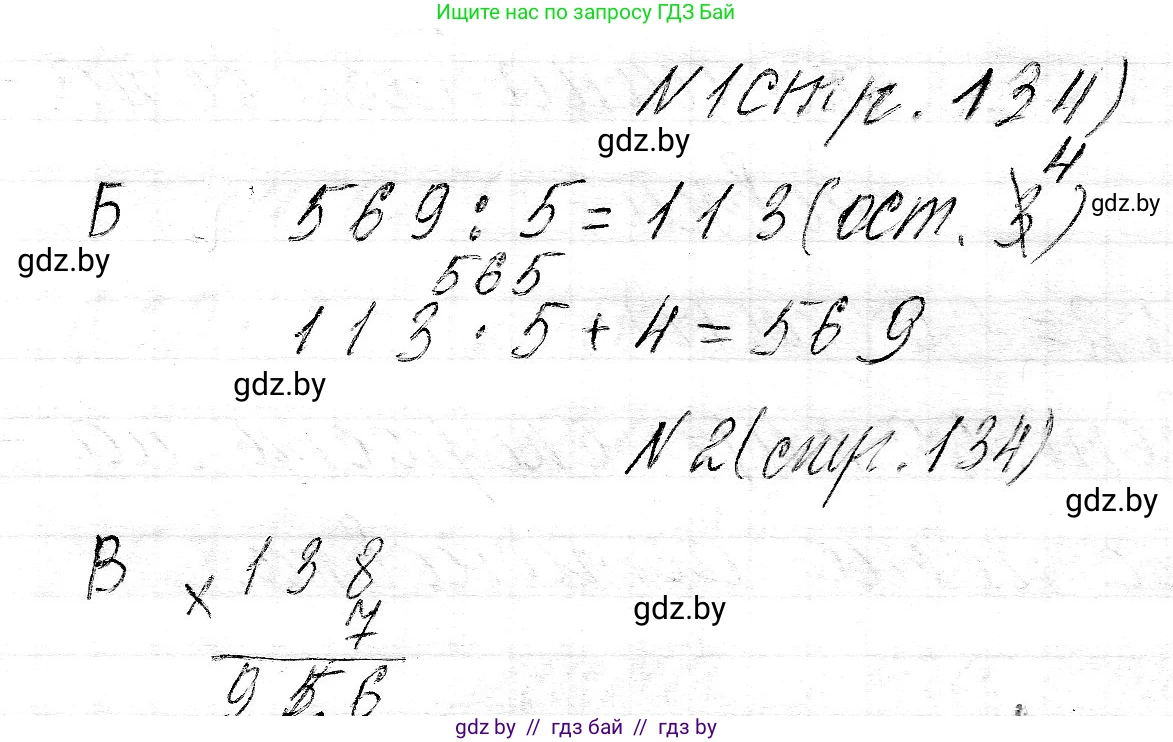 Ищите нас по запросу ГДЗ Бай
N 1 стр. 134)
gdz.by
Б 569 : 5 = 113 (ост. 3 4) gdz.by
gdz.by
565
113 · 5 + 4 = 569
gdz.by
N 2 (стр. 134)
gdz.by
В × 138
7
gdz.by
956
gdz.by // гдз бай // гдз by